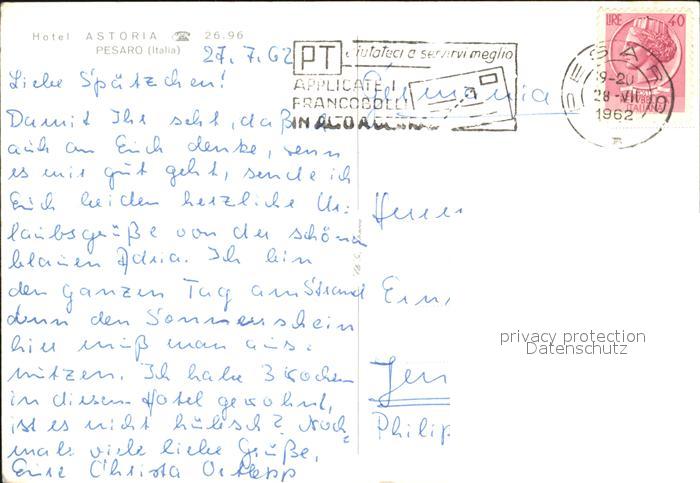 Hotel ASTORIA ☎ 26.96
PESARO (Italia)
27.7.62
Liebe Spätzchen!
Damit Ihr seht, daß
auch an Euch denke, wenn
es mir gut geht, sende ich
Euch beiden herzliche Ur=
laubsgrüße von der schönen
blauen Adria. Ich bin
den ganzen Tag am Strand
denn den Sonnenschein
hier muß man aus=
nützen. Ich habe 3 Wochen
in diesem Hotel gewohnt,
ist es nicht hübsch? Noch=
mals viele liebe Grüße,
Eure Christa
PT
aiutateci a servirvi meglio
APPLICATE I
FRANCOBOLLI
IN ALTO A
Germania
LIRE 40
ITALIANE
PESARO
19-20
28-VII
1962
Herrn
Jen
Philip
privacy protection
Datenschutz